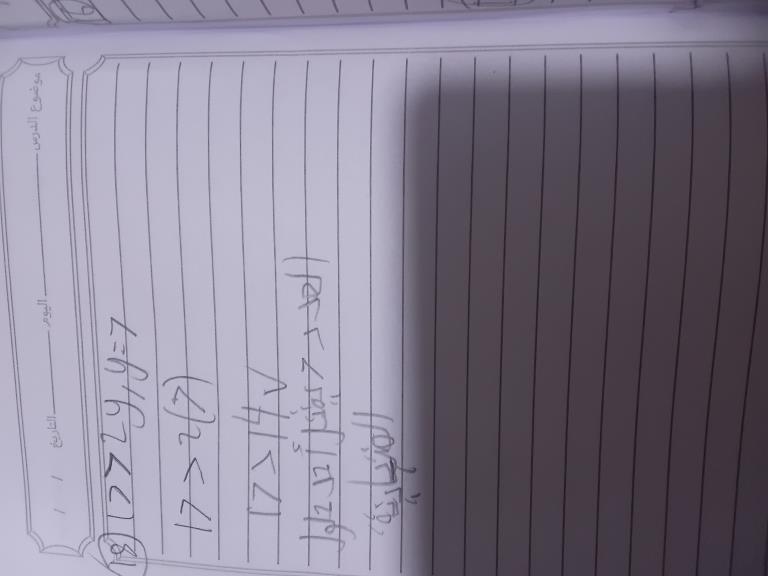 موضوع الدرس اليوم التاريخ / /
18 17 > 2y, y=7
17 > 2(7)
17 > 14 ✓
العدد 7 يمثل أحد حلول
المتباينة